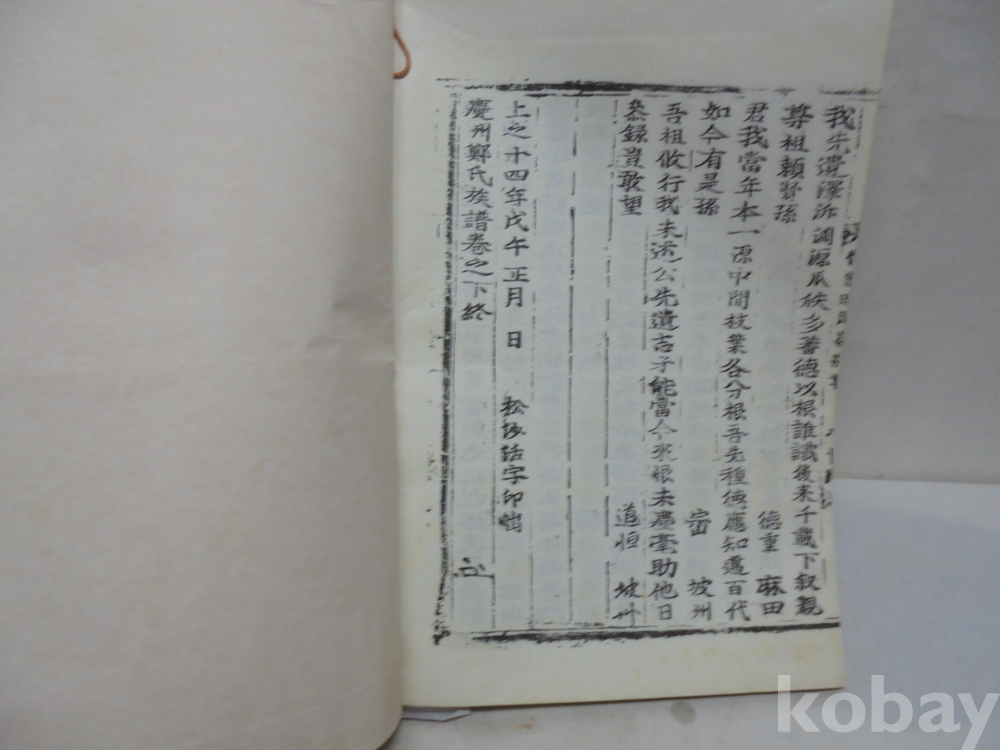 我先遺澤派淵源瓜瓞多蕃德以根誰識後來千載下叙親
尊祖賴賢孫
德重 麻田
君我當年本一源中間枝葉各分根吾先種德應知遠百代
如今有是孫
宙 坡州
吾祖攸行我未述公先遺志子能當今來恨未廣毫助他日
恭録豈敢望
道恒 坡州
上之十四年戊午正月 日 松 活字印出
慶州鄭氏族譜卷之下終
kobay